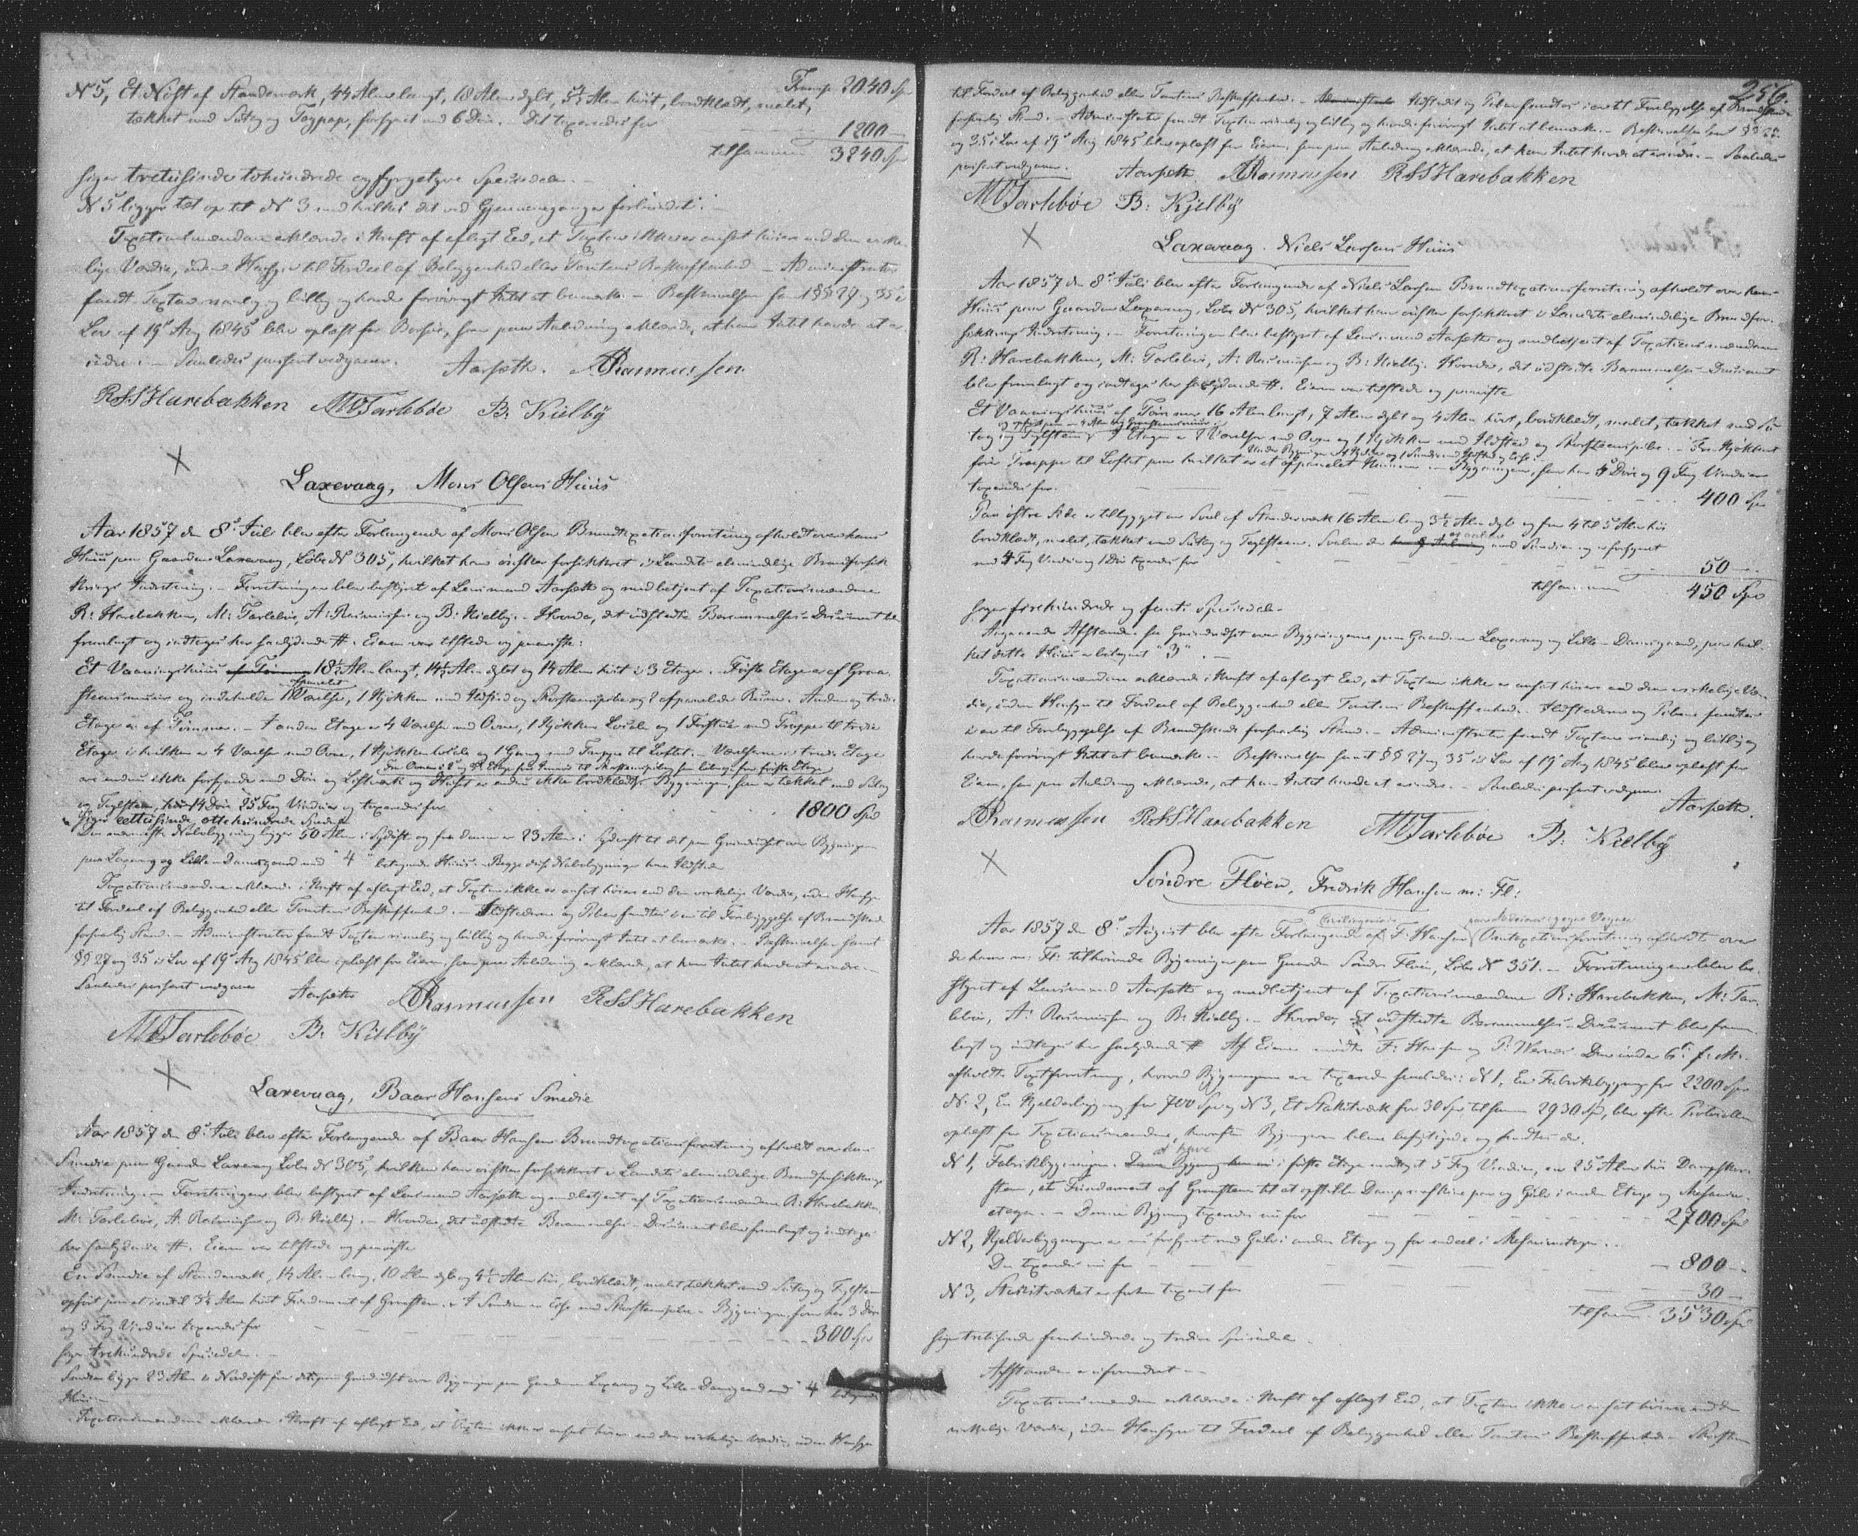 Transp. 2040 Spd
N 5, Et Nøst af Standværk, 44 Alen langt, 18 Alen dybt, 5½ Alen høit, bordklædt, malet,
tækket med Sutag og Tagpap, forsynet med 6 Døre. Det taxeredes for 1200
tilsammen 3240 Spd
siger tretusinde tohundrede og fyrgetyve Speciedaler.
N 5 ligger tæt op til N 3 med hvilket det ved Gjennemgange er forbundet.
Taxationsmændene erklærede i Kraft af aflagt Eed, at Taxten ikke er ansat høiere end den virke-
lige Værdie, uden Hensyn til Fordeel af Beliggenhed eller Tomtens Beskaffenhed. – Administrator
fandt Taxten rimelig og billig og havde forøvrigt Intet at bemærke. – Bestemmelsen samt §§ 27 og 35 i
Lov af 19de Aug 1845 blev oplæst for, som paa Anledning erklærede, at han Intet havde at er-
indre. – Saaledes passeret vedgaaes. Aarseth. A Rasmussen.
RSS Harebakken M Tarlebøe B. Kielby
Laxevaag, Mons Olsens Huus
Aar 1857 den 8de Juli blev efter Forlangende af Mons Olsen Brandtaxationsforretning afholdt over hans
Huus paa Gaarden Laxevaag, Løbe N 305, hvilket han ønsker forsikkret i Landets almindelige Brandforsik-
krings Indretning. – Forretningen blev bestyret af Lensmand Aarseth og medbetjent af Taxationsmændene
R. Harebakken, M. Tarlebøe, A. Rasmussen og B. Kielby. – Hvorda, det udstædte Berammelses-Document blev
fremlagt og indtages her saalydende #. Eieren var tilstede og paaviste:
Et Vaaningshuus af Tømmer 18½ Alen langt, 14½ Alen dybt og 14 Alen høit i 3 Etager. Første Etage er af Graa-
steensmuur og indeholder 1 panelet Værelse, 1 Kjøkken med Ildsted og Skorsteenspibe og 2 afpanelede Rum. Anden og tredie
Etage er af Tømmer. – I anden Etage er 4 Værelser med Ovne, 1 Kjøkken og 1 Forstue med Trappe til tredie
Etage, i hvilken er 4 Værelser med Ovne, 1 Kjøkken og 1 Gang med Trappe til Loftet. – Værelserne i tredie Etage
ere endnu ikke forsynede med Døre og Listværk og Huset er endnu ikke bordklædt. Bygningen, som er tækket med Sutag
og Teglsteen, har 14 Døre 25 Fag Vinduer og taxeredes for 1800 Spd
siger eettusinde, ottehundrede Speciedaler
Den nærmeste Nabobygning ligger 50 Alen i Sydøst og fra denne er 23 Alen i Sydvest til det paa Grundridset over Bygningerne
paa Laxevaag og Lille Damsgaard med "4" betegnede Huus. Begge disse Nabobygninger have Ildsted.
Taxationsmændene erklærede i Kraft af aflagt Eed, at Taxten ikke er ansat høiere end den virkelige Værdie, uden Hensyn
til Fordeel af Beliggenhed eller Tomtens Beskaffenhed. – Ildstederne og Piberne fandtes i en til Forebyggelse af Brandskade
forsvarlig Stand. – Administrator fandt Taxten rimelig og billig og havde forøvrigt Intet at bemærke. – Bestemmelsen samt
§§ 27 og 35 i Lov af 19de Aug 1845 blev oplæst for Eieren, som paa Anledning erklærede, at han Intet havde at erindre. –
Saaledes passeret vedgaaes Aarseth A Rasmussen RSS Harebakken
M Tarlebøe B. Kielby
Laxevaag, Baar Hansens Smedie
Aar 1857 den 8de Juli blev efter Forlangende af Baar Hansen Brandtaxationsforretning afholdt over hans
Smedie paa Gaarden Laxevaag Løbe N 305, hvilken han ønsker forsikkret i Landets almindelige Brandforsikkrings
Indretning. – Forretningen blev bestyret af Lensmand Aarseth og medbetjent af Taxationsmændene R. Harebakken,
M. Tarlebøe, A. Rasmussen og B. Kielby. – Hvorda, det udstædte Berammelses-Document blev fremlagt og indtages
her saalydende #. Eieren var tilstede og paaviste
En Smedie af Standværk, 14 Alen lang, 10 Alen dyb og 4½ Alen høi, bordklædt, malet tækket med Sutag og Teglsteen
opført paa et indtil 3½ Alen høit Fundament af Graasteen. I Smedien er Esse med Skorsteenspibe – Bygningen som har 3 Døre
og 3 Fag Vinduer taxeredes for 300 Spd
siger trehundrede Speciedaler. –
Smedien ligger 23 Alen i Nordøst fra det paa Grundridset over Bygningerne paa Gaardene Laxevaag og Lille Damsgaard med "4" betegnede
Huus. –
Taxationsmændene erklærede i Kraft af aflagt Eed, at Taxten ikke er ansat høiere end den virkelige Værdie, uden Hensyn
256.
til Fordeel af Beliggenhed eller Tomtens Beskaffenhed. – Ildstedet og Piben fandtes i en til Forebyggelse af Brandskade
forsvarlig Stand. – Administrator fandt Taxten rimelig og billig og havde forøvrigt Intet at bemærke. – Bestemmelsen samt §§ 27
og 35 i Lov af 19de Aug 1845 blev oplæst for Eieren, som paa Anledning erklærede, at han Intet havde at erindre. – Saaledes
passeret vedgaaes. Aarseth A Rasmussen RSS Harebakken
M Tarlebøe B. Kjelby
Laxevaag. Niels Larsens Huus
Aar 1857 den 8de Juli blev efter Forlangende af Niels Larsen Brandtaxationsforretning afholdt over hans
Huus paa Gaarden Laxevaag, Løbe N 305, hvilket han ønsker forsikkret i Landets almindelige Brandfor-
sikkrings Indretning. – Forretningen blev bestyret af Lensmand Aarseth og medbetjent af Taxationsmændene
R. Harebakken, M. Tarlebøe, A. Rasmussen og B. Kielby. Hvorda, det udstædte Berammelses-Document
blev fremlagt og indtages her saalydende #. Eieren var tilstede og paaviste
Et Vaaningshuus af Tømmer 16 Alen langt, 7 Alen dybt og 4 Alen høit, bordklædt, malet, tækket med Su-
tag og Teglsteen. I Etagen er 2 Værelser med Ovne og 1 Kjøkken med Ildsted og Skorsteenspibe. – Fra Kjøkkenet
fører Trappe til Loftet paa hvilket er et afpanelet Kammer. – Bygningen, som har 5 Døre og 9 Fag Vinduer
taxeredes for. 400 Spd
Paa østre Side er tilbygget en Sval af Standværk 16 Alen lang 3½ Alen dyb og fra 4 til 5 Alen høi
bordklædt, malet, tækket med Sutag og Teglsteen. Svalen og er forsynet
med 4 Fag Vinduer og 1 Dør taxeredes for 50
tilsammen 450 Spd
siger firehundrede og femti Speciedaler
Angaaende Afstanden sees Grundridset over Bygningerne paa Gaardene Laxevaag og Lille Damsgaard, paa hvil-
ket dette Huus er betegnet "3". –
Taxationsmændene erklærede i Kraft af aflagt Eed, at Taxten ikke er ansat høiere end den virkelige Vær-
die, uden Hensyn til Fordeel af Beliggenhed eller Tomtens Beskaffenhed. Ildstederne og Piberne fandtes
i en til Forebyggelse af Brandskade forsvarlig Stand. – Administrator fandt Taxten rimelig og billig og
havde forøvrigt Intet at bemærke. – Bestemmelsen samt §§ 27 og 35 i Lov af 19de Aug 1845 blev oplæst for
Eieren, som paa Anledning erklærede, at han Intet havde at erindre. – Saaledes passeret vedgaaes.
Aarseth.
A Rasmussen RSS Harebakken M Tarlebøe B. Kielby
Søndre Fløen, Fredrik Hansen m: Fl:
Aar 1857 den 8de August blev efter Forlangende af F. Hansen Omtaxationsforretning afholdt over
de ham m: Fl: tilhørende Bygninger paa Gaarden Søndre Fløen, Løbe N 351. – Forretningen blev be-
styret af Lensmand Aarseth og medbetjent af Taxationsmændene R. Harebakken, M. Tar-
lebøe, A. Rasmussen og B. Kielby. – Hvorda, det udstædte Berammelses-Document blev frem-
lagt og indtages her saalydende # Af Eierne mødte F. Hansen og P. Werner. Den under 6te f: M:
afholdte Taxtforretning, hvorved Bygningerne ere taxerede saaledes: N 1, En Fabrikbygning for 2200 Spd
N. 2, En Kjelderbygning for 700 Spd og N 3, Et Stakitværk for 30 Spd tilsammen 2930 Spd, blev efter Protocollen
oplæst for Taxationsmændene, hvorefter Bygningerne bleve besigtigede og fandtes de.
N 1, Fabrikbygningen. i første Etage indsat 5 Fag Vinduer, en 25 Alen høi Dampskor-
steen, et Fundament af Graasteen til at opstille Dampmaskine paa og Gulv i anden Etage og Mesanin-
etagen. – Denne Bygning taxeredes nu for 2700 Spd
N 2, Kjelderbygningen er nu forsynet med Gulv i anden Etage og for endeel i Mesaninetagen. –
Den taxeredes nu for 800
N 3, Stakitværket er forhen taxeret for 30
tilsammen 3530 Spd
siger tretusinde femhundrede og tredive Speciedaler.
Afstanden er uforandret –
Taxationsmændene erklærede i Kraft af aflagt Eed, at Taxten ikke er ansat høiere end den
virkelige Værdie, uden Hensyn til Fordeel af Beliggenhed eller Tomtens Beskaffenhed. – Skorsteen